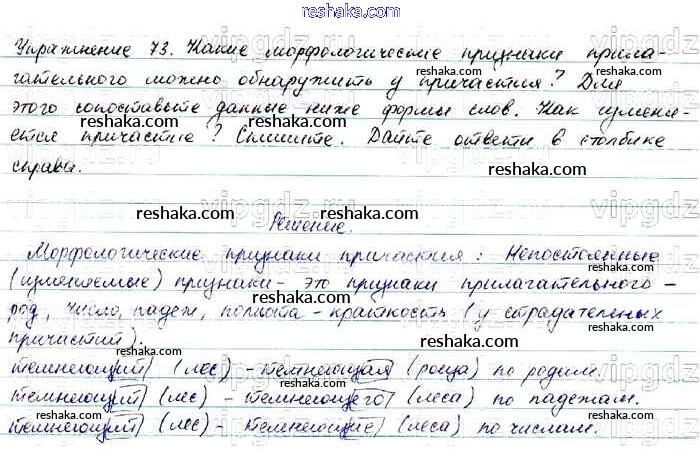 reshaka.com
Упражнение 73. Какие морфологические признаки прила-
гательного можно обнаружить у причастия? Для
этого сопоставьте данные ниже формы слов. Как изменя-
ется причастие? Спишите. Дайте ответы в столбике
справа.
Решение.
Морфологические признаки причастия: Непостоянные
(изменяемые) признаки - это признаки прилагательного -
род, число, падеж, полнота - краткость (у страдательных
причастий).
темнеющий (лес) - темнеющая (роща) по родам.
темнеющий (лес) - темнеющего (леса) по падежам.
темнеющий (лес) - темнеющие (леса) по числам.
reshaka.com